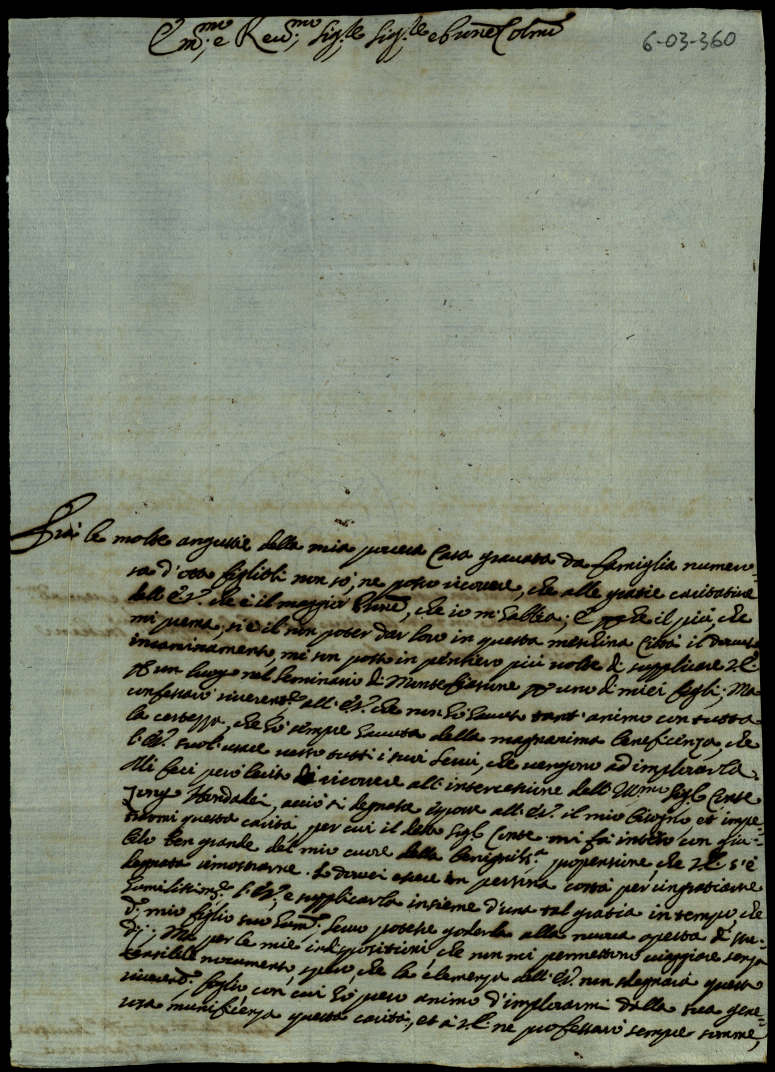 Em.mo e Reu.mo Sig.re Sig.re e Prone Colmo
6-03-360
Frà le molte angustie della mia povera Casa gravata da famiglia numero=
sa d'otto figlioli non sò, ne posso ricorrere, che alle gratie caritative
dell'E.V. che è il maggior Prone, che io m'habbia; E perche il più, che
mi prema, si è il non poter dar loro in questa meschina Città il dovuto
incaminamento, mi son posto in pensiero più volte di supplicare V.E.
p un luogo nel Seminario di Montefiascone p uno di miei figli; Ma
confessarò riverent.e all'E.V. che non hò havuto tant'animo con tutta
la certezza, che hò sempre havuta della magnanima beneficenza, che
l'E.V. suol usare verso tutti i suoi servi, che vengono ad implorarla.
Mi feci però lecito di ricorrere all'intercessione dell'Ill.mo Sig.r Conte
acciò si degnasse esporre all'E.V. il mio bisogno et impe=
trarmi questa carità, per cui il detto Sig.r Conte mi fà inteso con giu=
bilo ben grande del mio cuore della benigniss.a propensione che V.E. s'è
degnata dimostrarne. Io dovrei essere in persona costà per ringratiarne
humilissim.e l'E.V., e supplicarla insieme d'una tal gratia in tempo, che
d.o mio figlio suo hum.o servo potesse goderla alla nuova apertura di stu=
dij; Ma per le mie indispositioni, che non mi permettono viaggiare senza
sensibile nocumento, spero che la clemenza dell'E.V. non sdegnarà questo
riverent.e foglio, con cui hò preso animo d'implorarmi dalla sua gene=
rosa munificenza questa carità, et à V.E. ne professarò sempre somme,